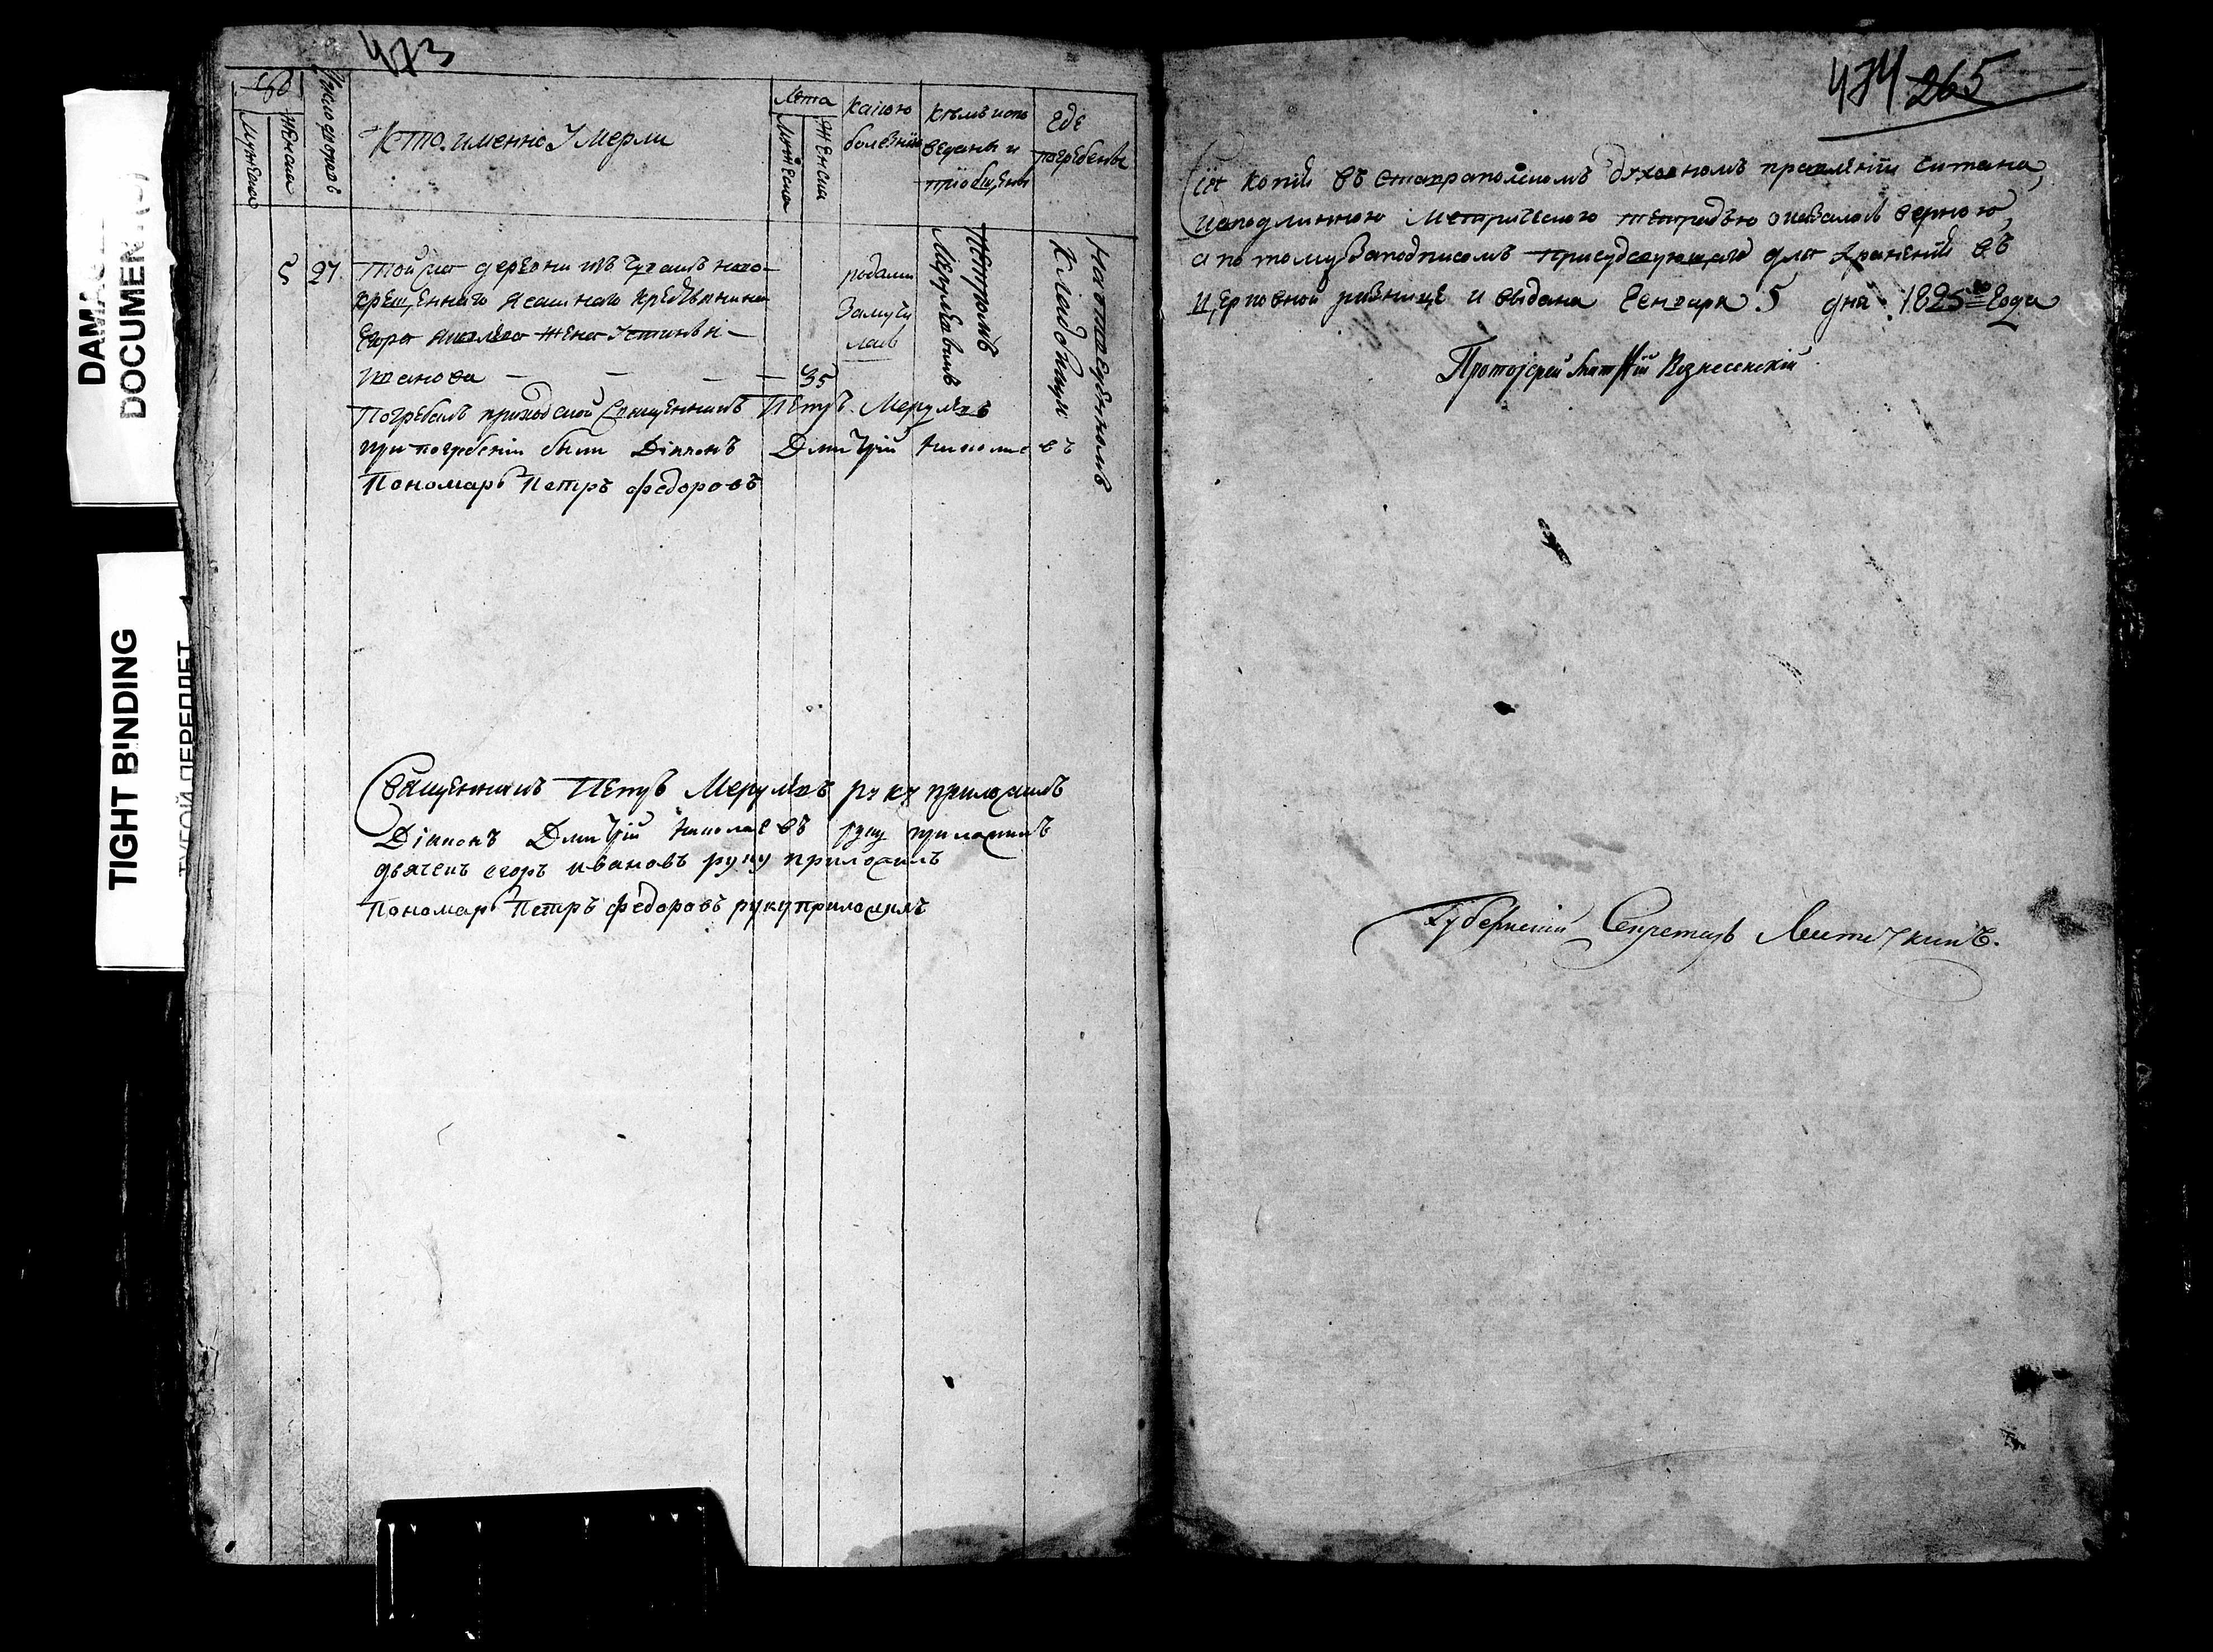 DAMAGED
DOCUMENT(S)
TIGHT BINDING
ТУГОЙ ПЕРЕПЛЕТ
473
Число умершихъ
Мужеска
Женска
Кто именно Умерли
Лета
Мужеска
Женска
какою
болезнию
кемъ испо
веданы и
приобщены
Где
погребены
2
27
Той же деревни изъ Чувашъ ново
крещеннаго ясашнаго крестьянина
Егора жена Устинья
Иванова — — — — 35
родами
замучи
лась
Петромъ
Меркулевымъ
На отведенномъ
Кладбищи
Погребалъ приходской Священникъ Петръ
при погребении были Діаконъ Дмитрій Николаевъ
Пономарь Петръ Федоровъ
Священникъ Петръ руку приложилъ
Діаконъ Дмитрій Николаевъ руку приложилъ
дьячекъ егоръ ивановъ руку приложилъ
Пономарь Петръ Федоровъ руку приложилъ
474 265
Сія копія въ ставропольскомъ духовномъ правленіи читана,
и сподлинною Метрическою тетрадью оказалась верною,
а по тому Заподписомъ присудсвующаго для хранения въ
церковной ризнице и выдана Генваря 5 дня 1825го Года
Протоіерей Вознесенскій
Губернскій Секретарь